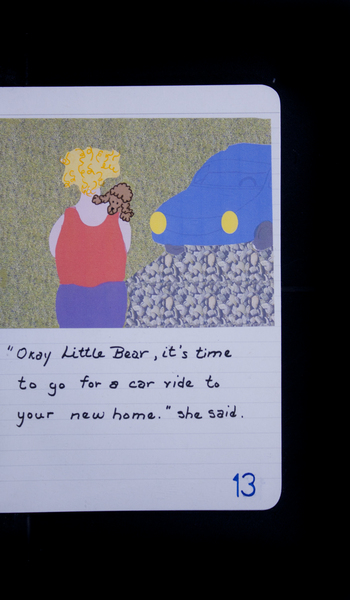 "Okay Little Bear, it's time
to go for a car ride to
your new home." she said.
13